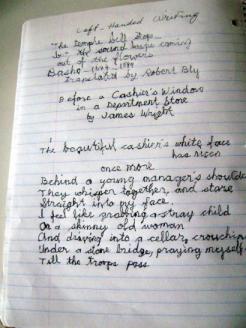 Left-Handed Writing
"The temple bell stops
but the sound keeps coming
out of the flowers."
Basho - 1644 - 1694
Translated by Robert Bly
Before a Cashier's Window
in a Department Store
by James Wright
1
The beautiful cashier's white face
has risen
once more
Behind a young manager's shoulde
They whisper together, and stare
Straight into my face.
I feel like grabbing a stray child
Or a skinny old woman
And diving into a cellar, crouching
Under a stone bridge, praying myself
Till the troops pass.